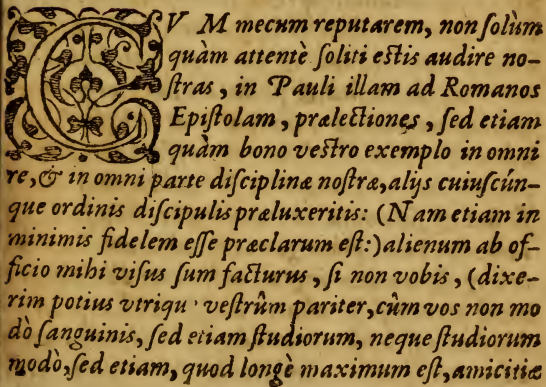 CVM mecum reputarem, non ſolùm
quàm attentè ſoliti eſtis audire no-
ſtras, in Pauli illam ad Romanos
Epiſtolam, prælectiones, ſed etiam
quàm bono veſtro exemplo in omni
re, & in omni parte diſciplinæ noſtræ, alijs cuiuſcún-
que ordinis diſcipulis præluxeritis: (Nam etiam in
minimis fidelem eſſe præclarum eſt:) alienum ab of-
ficio mihi viſus ſum facturus, ſi non vobis, (dixe-
rim potius vtriqu veſtrûm pariter, cûm vos non mo
dò ſanguinis, ſed etiam ſtudiorum, neque ſtudiorum
modò, ſed etiam, quod longè maximum eſt, amicitiæ